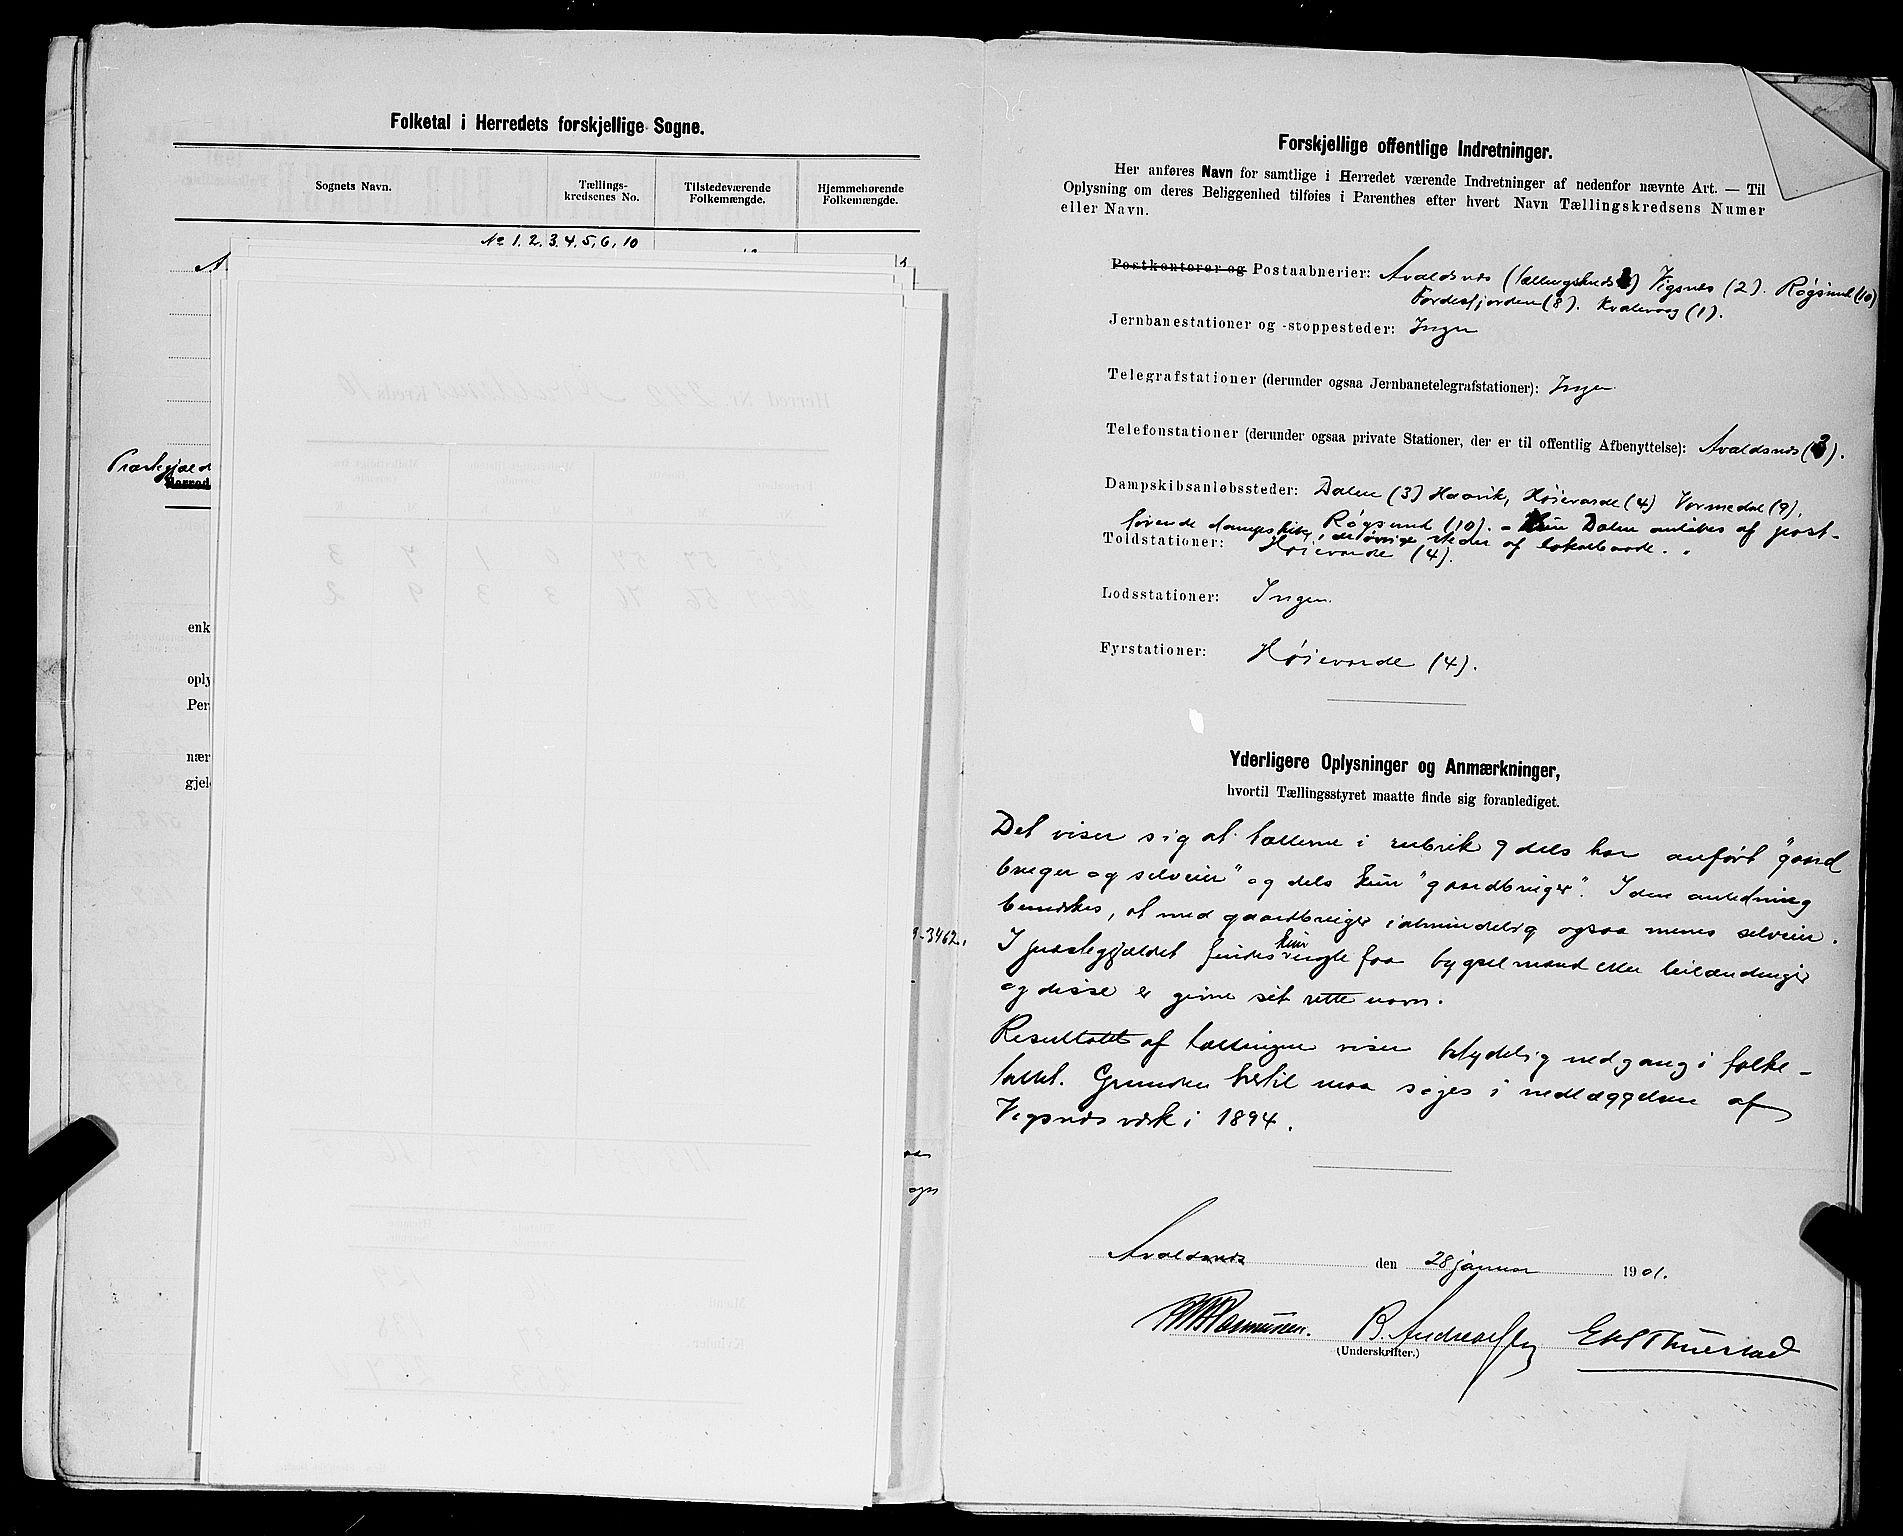 Folketal i Herredets forskjellige Sogne.
Sognets Navn.
Tællings-
kredsenes No.
Tilstedeværende
Folkemængde.
Hjemmehørende
Folkemængde.
No 1, 2, 3, 4, 5, 6, 10
A
Præstegjæld
Herred
enk
oply
Per
nær
gjel
3462.
Forskjellige offentlige Indretninger.
Her anføres Navn for samtlige i Herredet værende Indretninger af nedenfor nævnte Art. — Til
Oplysning om deres Beliggenhed tilføies i Parenthes efter hvert Navn Tællingskredsens Numer
eller Navn.
Postkontorer og Postaabnerier: Avaldsnæs (tællingskreds) Vigsnæs (2). Røgsund (10)
Førdesfjorden (8). Kvalevaag (1).
Jernbanestationer og -stoppesteder: Ingen
Telegrafstationer (derunder ogsaa Jernbanetelegrafstationer): Ingen.
Telefonstationer (derunder ogsaa private Stationer, der er til offentlig Afbenyttelse): Avaldsnæs (3).
Dampskibsanløbsteder: Dalen (3) Haavik, Høievarde (4) Vormedal (9),
Røgsund (10). - Kun Dalen anløbes af post-
førende dampskibe, de øvrige steder af lokalbaade.
Toldstationer: Høievarde (4).
Lodsstationer: Ingen.
Fyrstationer: Høievarde (4).
Yderligere Oplysninger og Anmærkninger,
hvortil Tællingsstyret maatte finde sig foranlediget.
Det viser sig at tællerne i rubrik 9 dels har anført "gaard
bruger og selveier" og dels kun "gaardbruger". I den anledning
bemærkes, at med gaardbruger i almindelig ogsaa menes selveier.
I præstegjældet findes kun nogle faa bygselmænd eller leilændinger
og disse er givne sit rette navn.
Resultatet af tællingen viser betydelig nedgang i folke-
tallet. Grunden hertil maa søges i nedlæggelsen af
Vigsnæs værk i 1894.
Avaldsnæs den 28 januar 1901.
Rasmussen. B. Andreas
(Underskrifter.)